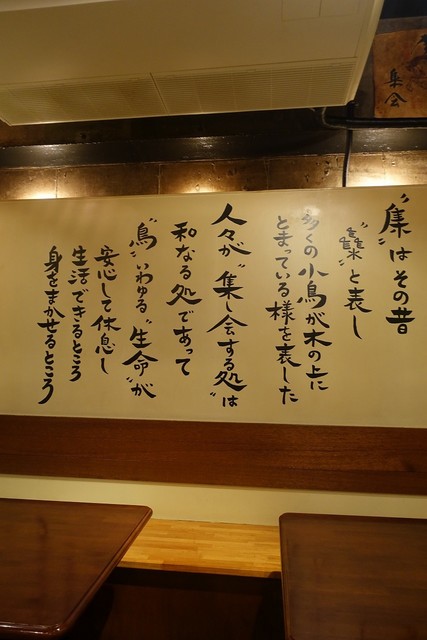 集会
"集"はその昔
"雧"と表し
多くの小鳥が木の上に
とまっている様を表した
人々が"集し会する処"は
和なる処であって
"鳥"いわゆる"生命"が
安心して休息し
生活できるところ
身をまかせるところ